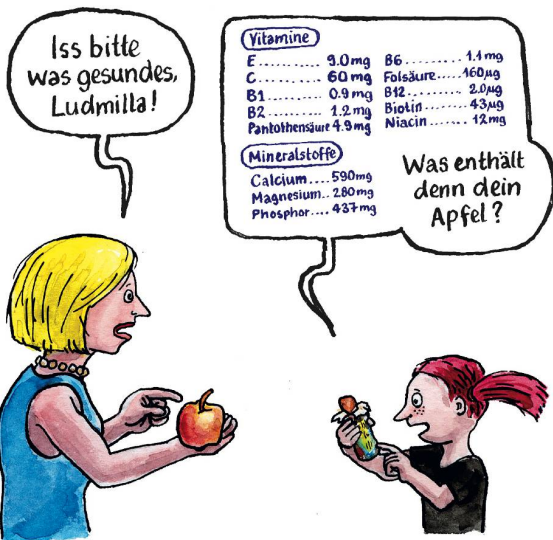 Iss bitte
was gesundes,
Ludmilla!
Vitamine
E.......... 9.0mg
C.......... 60mg
B1......... 0.9mg
B2......... 1.2mg
Pantothensäure 4.9mg
B6........ 1.1mg
Folsäure.....160µg
B12........ 2.0µg
Biotin...... 43µg
Niacin....... 12mg
Mineralstoffe
Calcium.... 590mg
Magnesium.. 280mg
Phosphor.... 437mg
Was enthält
denn dein
Apfel?